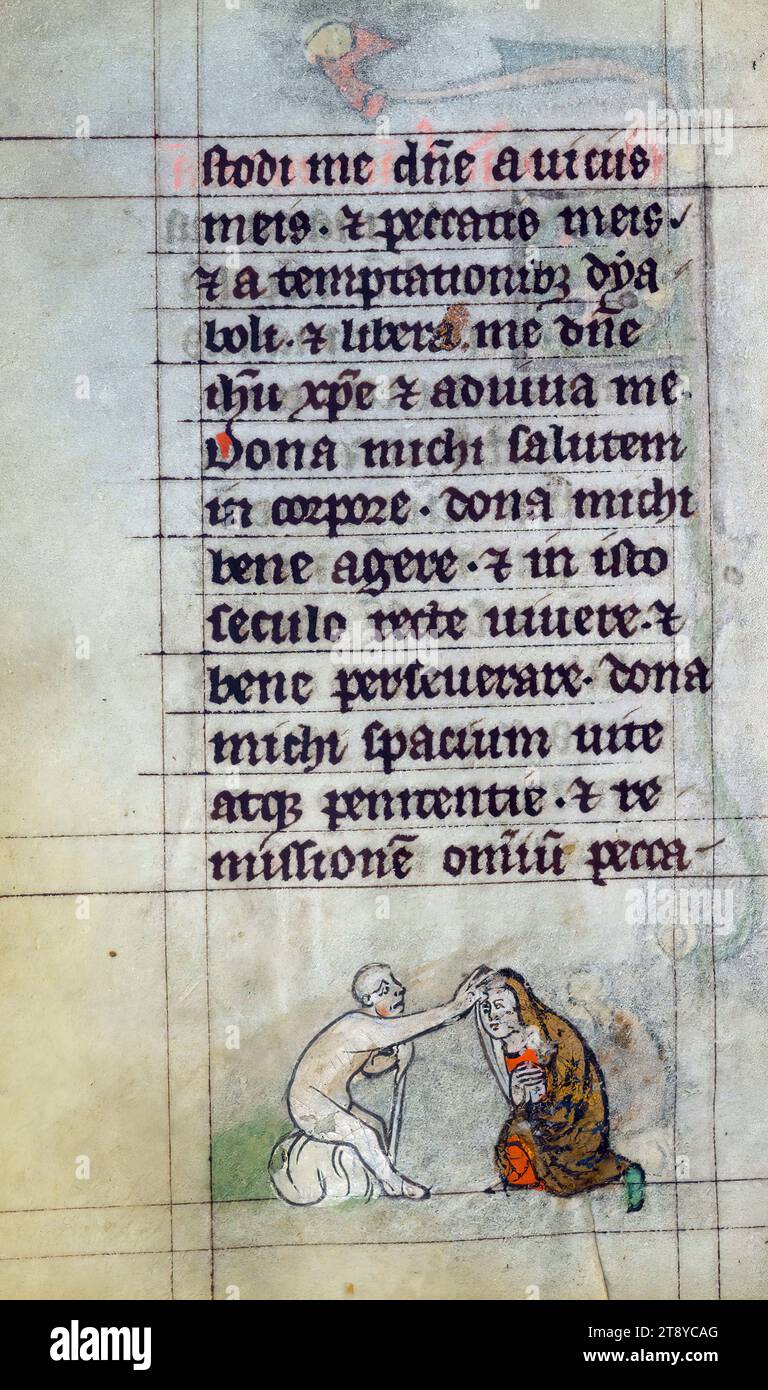 stodi me dn̄e a uiciis
meis. ⁊ peccatis meis
⁊ a temptationibꝫ dẏa
boli. ⁊ libera me dn̄e
ih̄u xp̄e ⁊ adiuua me.
Dona michi salutem
in corpore. dona michi
bene agere. ⁊ in isto
seculo recte uiuere. ⁊
bene perseuerare. dona
michi spacium uite
atqꝫ penitentie. ⁊ re
missionē om̄iū pecca-
alamy
alamy
alamy
alamy
Image ID: 2T8YCAG
www.alamy.com